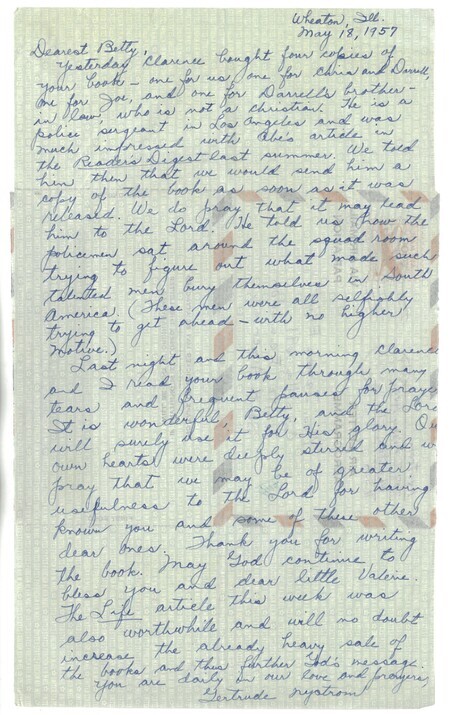 Wheaton, Ill.
May 18, 1957
Dearest Betty,
Yesterday Clarence bought four copies of
your book - one for us, one for Chris and Darrell,
one for Joe, and one for Darrell's brother-
in-law, who is not a Christian. He is a
police sergeant in Los Angeles and was
much impressed with Abe's article in
the Readers Digest last summer. We told
him then that we would send him a
copy of the book as soon as it was
released. We do pray that it may lead
him to the Lord. He told us how the
policemen sat around the squad room
trying to figure out what made such
talented men bury themselves in South
America. (These men were all selfishly
trying to get ahead - with no higher
motive.)
Last night and this morning Clarence
and I read your book through many
tears and frequent pauses for prayer
It is wonderful, Betty, and the Lord
will surely use it for His glory. Our
own hearts were deeply stirred and we
pray that we may be of greater
usefulness to the Lord for having
known you and some of these other
dear ones. Thank you for writing
the book. May God continue to
bless you and dear little Valerie.
The Life article this week was
also worthwhile and will no doubt
increase the already heavy sale of
the books and thus further God's message.
You are daily in our love and prayers,
Gertrude Nystrom